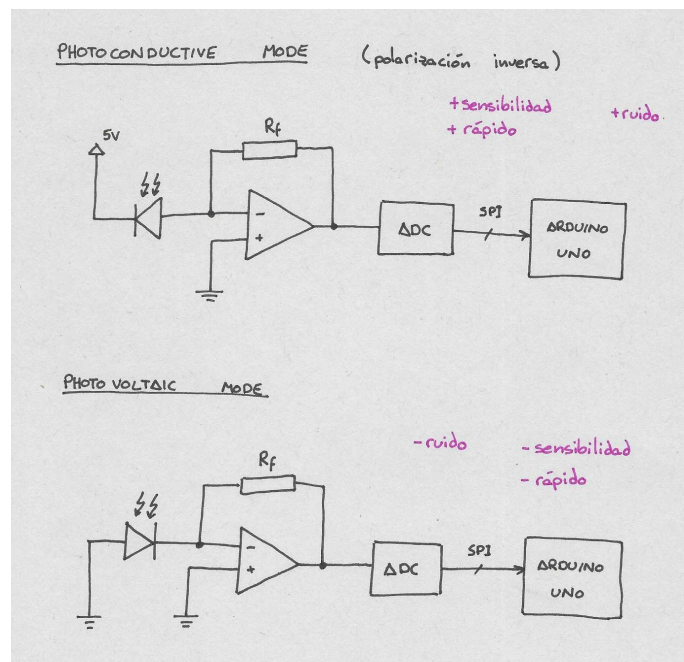 PHOTOCONDUCTIVE MODE (polarización inversa)
+sensibilidad +ruido
+ rápido
5V
Rf
-
+
ADC
SPI
ARDUINO
UNO
PHOTOVOLTAIC MODE
-ruido - sensibilidad
- rápido
Rf
-
+
ADC
SPI
ARDUINO
UNO